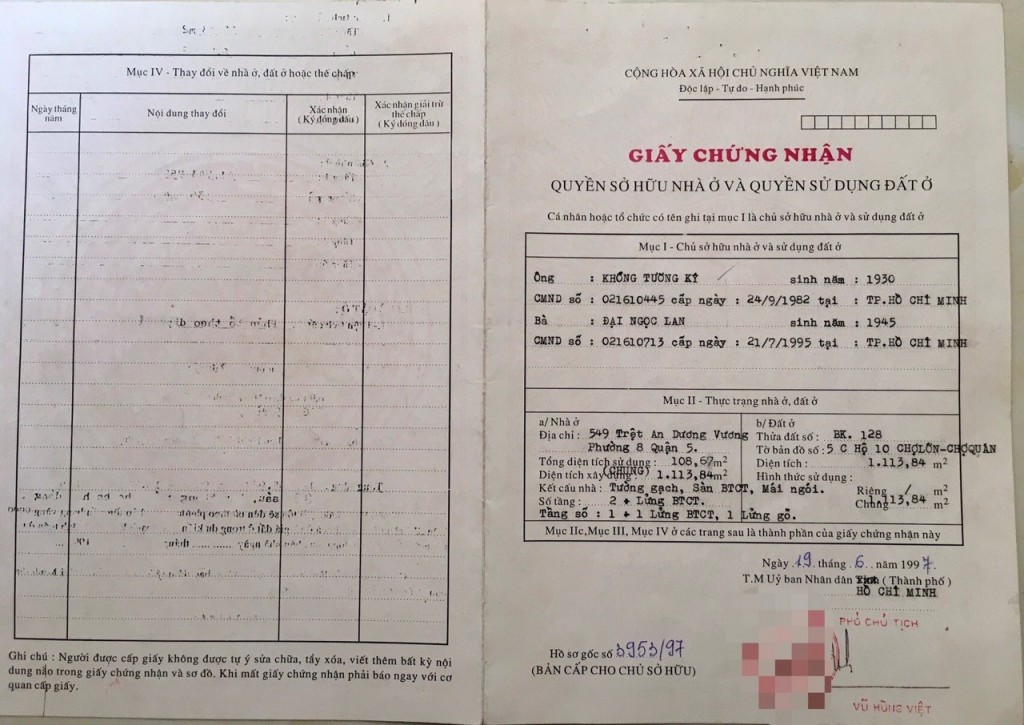 Mục IV - Thay đổi về nhà ở, đất ở hoặc thế chấp
Ngày tháng năm
Nội dung thay đổi
Xác nhận (Ký đóng dấu)
Xác nhận giải trừ thế chấp (Ký đóng dấu)
Ghi chú : Người được cấp giấy không được tự ý sửa chữa, tẩy xóa, viết thêm bất kỳ nội
dung nào trong giấy chứng nhận và sơ đồ. Khi mất giấy chứng nhận phải báo ngay với cơ
quan cấp giấy.
CỘNG HÒA XÃ HỘI CHỦ NGHĨA VIỆT NAM
Độc lập - Tự do - Hạnh phúc
GIẤY CHỨNG NHẬN
QUYỀN SỞ HỮU NHÀ Ở VÀ QUYỀN SỬ DỤNG ĐẤT Ở
Cá nhân hoặc tổ chức có tên ghi tại mục I là chủ sở hữu nhà ở và sử dụng đất ở
Mục I - Chủ sở hữu nhà ở và sử dụng đất ở
Ông : KHỔNG TƯỜNG KỶ sinh năm : 1930
CMND số : 021610445 cấp ngày : 24/9/1982 tại : TP.HỒ CHÍ MINH
Bà : ĐẠI NGỌC LAN sinh năm : 1945
CMND số : 021610713 cấp ngày : 21/7/1995 tại : TP.HỒ CHÍ MINH
Mục II - Thực trạng nhà ở, đất ở
a/ Nhà ở
Địa chỉ : 549 Trệt An Dương Vương
Phường 8 Quận 5.
Tổng diện tích sử dụng : 108,67m2
(CHUNG)
Diện tích xây dựng : 1.113,84m2
Kết cấu nhà : Tường gạch, Sàn BTCT, Mái ngói.
Số tầng : 2 + Lửng BTCT.
Tầng số : 1 + 1 Lửng BTCT, 1 Lửng gỗ.
b/ Đất ở
Thửa đất số : BK. 128
Tờ bản đồ số : 5 C Hộ 10 CHỢLỚN-CHỢQUÁN
Diện tích : 1.113,84 m2
Hình thức sử dụng :
Riêng / m2
Chung 1.113,84 m2
Mục IIc,Mục III, Mục IV ở các trang sau là thành phần của giấy chứng nhận này
Ngày 19 tháng 6 năm 1997.
T.M Uỷ ban Nhân dân Tỉnh ( Thành phố )
HỒ CHÍ MINH
PHÓ CHỦ TỊCH
Hồ sơ gốc số 3953/97
(BẢN CẤP CHO CHỦ SỞ HỮU)
VŨ HÙNG VIỆT